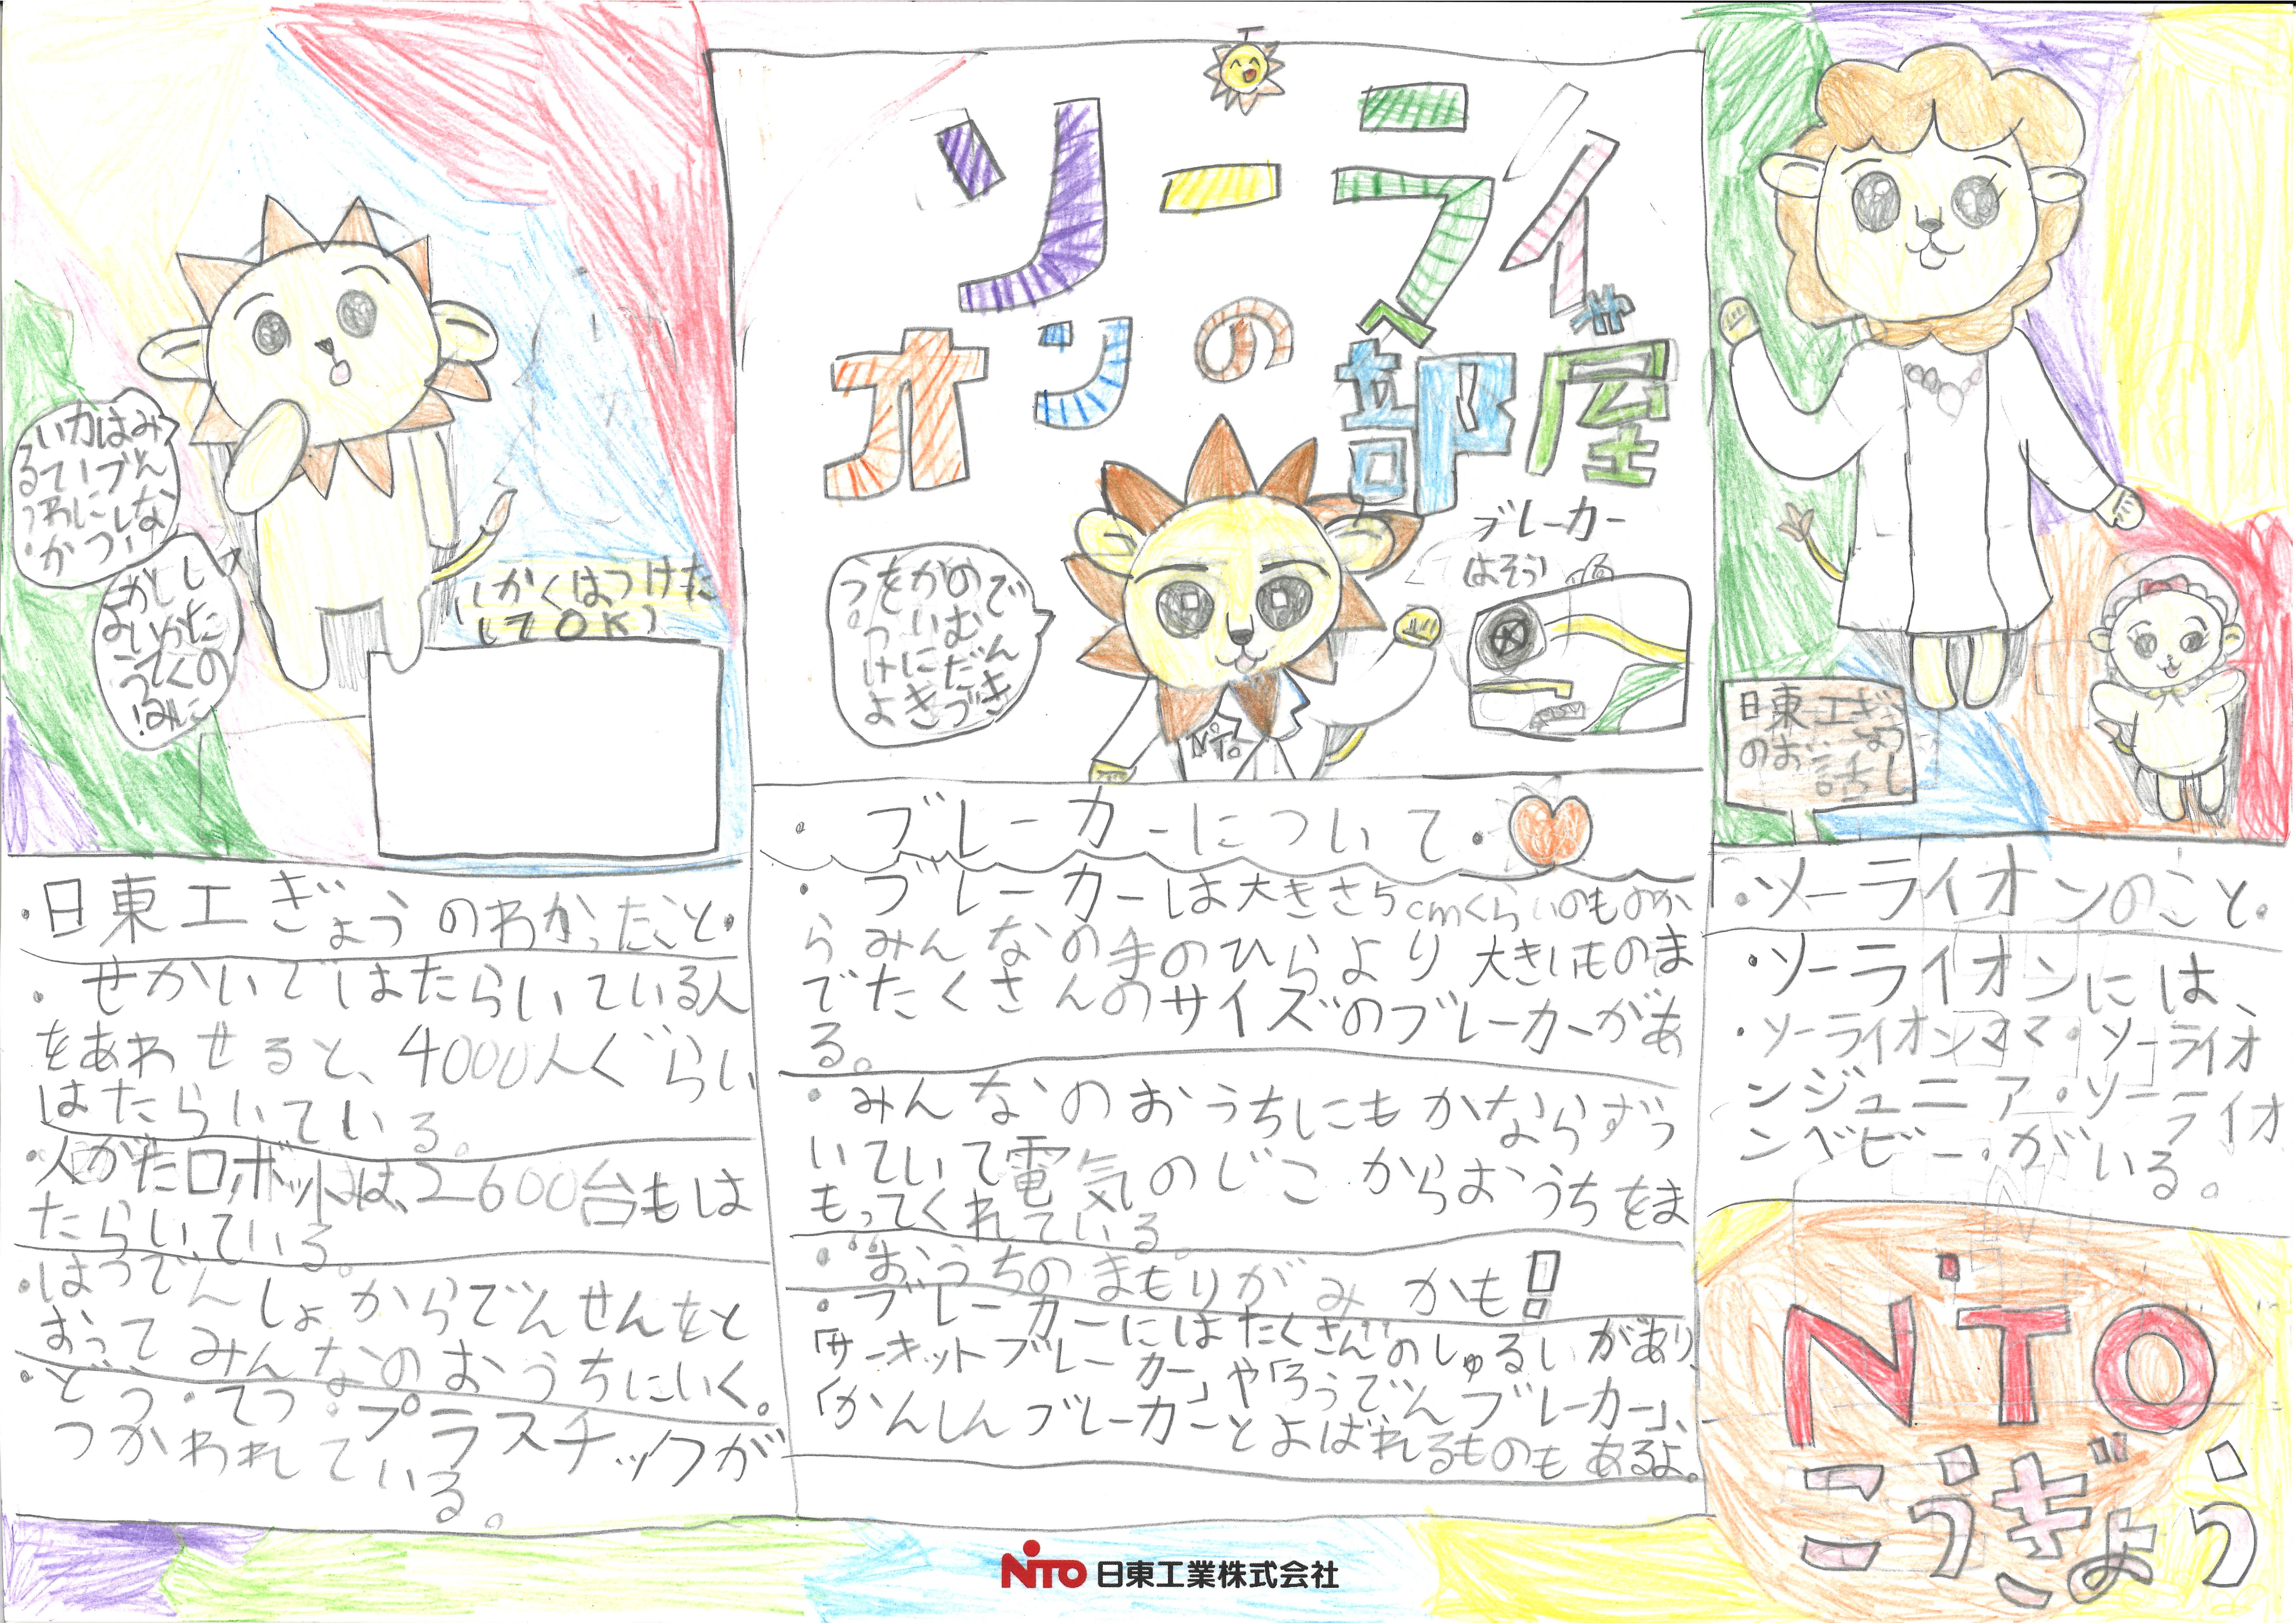 ソーライ
オンの部屋
へ や
みんな
はブレー
カーにつ
いてわか
したの
しかくに
かいてみ
よう!
(しかくはつけた
してOK)
でんき
のむだづ
かいにき
をつけよ
う。
NiTO
ブレーカー
(よそう)
日東工ぎょう
のお話し
・日東工ぎょうのわかったこと・
・せかいではたらいている人
をあわせると、4000人ぐらい
はたらいている。
・人がたロボットは、2600台もは
たらいている。
・はつでんしょからでんせんをと
おってみんなのおうちにいく。
・どう・てつ・プラスチックが
つかわれている。
・ブレーカーについて・
・ブレーカーは大きさ5cmくらいのものか
らみんなの手のひらより大きいものま
でたくさんのサイズのブレーカーがあ
る。
・みんなのおうちにもかならずつ
いていて電気のじこからおうちをま
もってくれている。
・“おうちのまもりがみかも!
・ブレーカーにはたくさんのしゅるいがあり、
「サーキットブレーカー」や「ろうでんブレーカー」、
「かんしんブレーカーとよばれるものもあるよ。
・ソーライオンのこと・
・ソーライオンには、
・ソーライオンママ・ソーライオ
ンジュニア・ソーライオ
ンベビー・がいる。
NiTO
こうぎょう
NiTO 日東工業株式会社